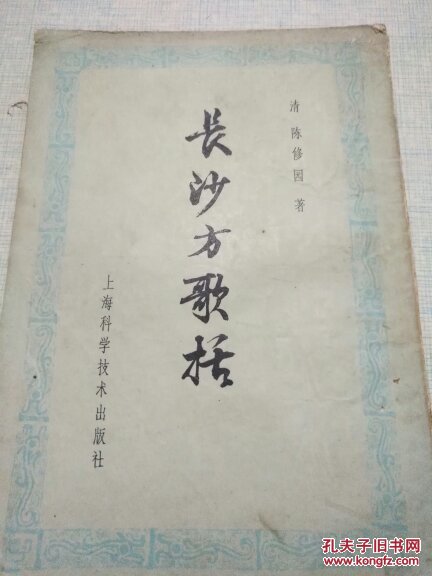 清 陈修园 著
長沙方歌括
上海科学技术出版社
孔夫子旧书网
KONGFZ.COM